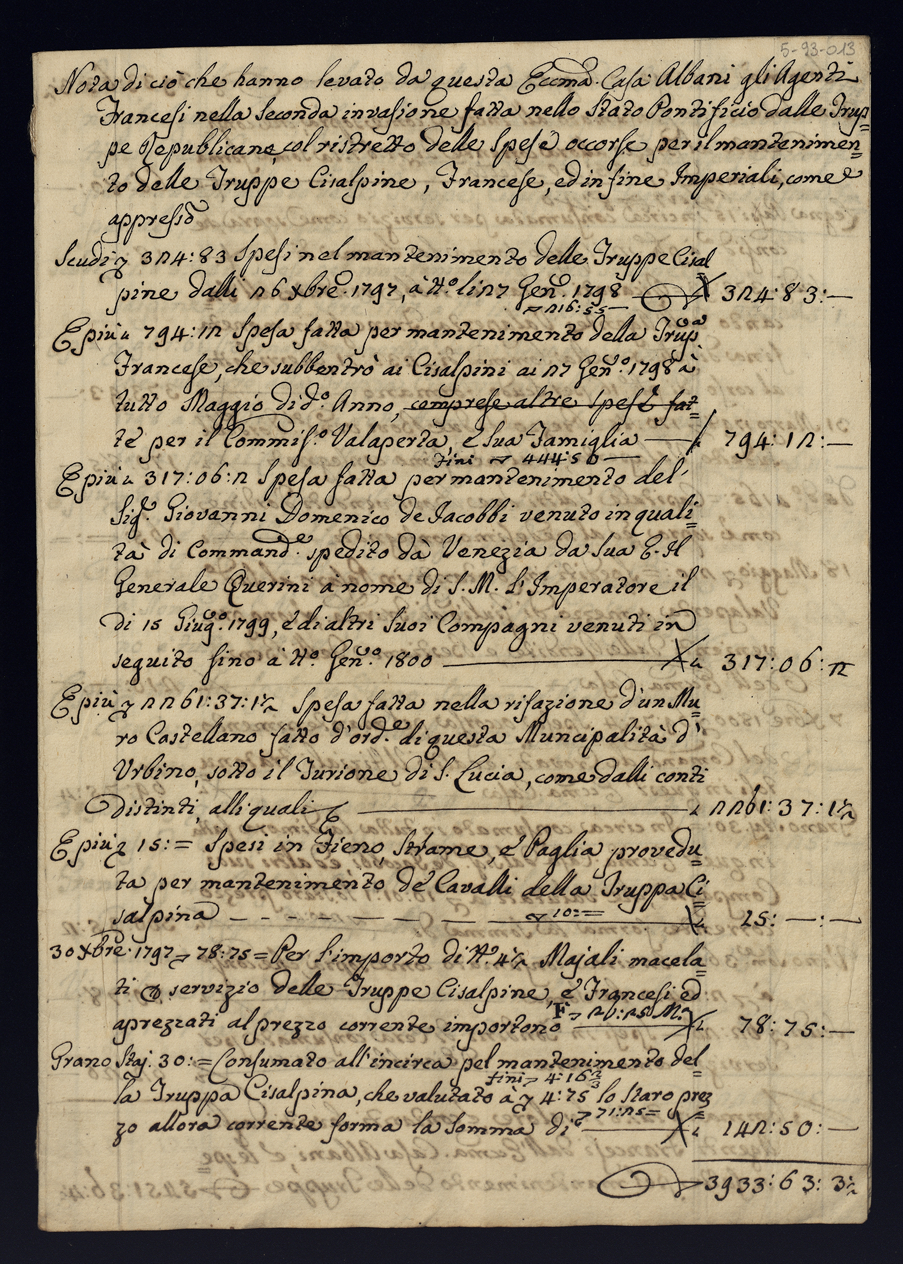 5-93-013
Nota di ciò che hanno levato da questa Eccma. Casa Albani gli Agenti
Francesi nella seconda invasione fatta nello Stato Pontificio dalle Trup=
pe Republicane, col ristretto delle Spese occorse per il mantenimen=
to delle Truppe Cisalpine, Francese, ed in fine Imperiali, come
appresso
Scudi 324:83 Spesi nel mantenimento delle Truppe Cisal=
pine dalli 26 Xbre. 1797, à tto. li 27 Genо. 1798 324:83:—
216:55—
E più 794:12 Spesa fatta per mantenimento della Trupa
Francese, che subbentrò ai Cisalpini ai 27 Geno. 1798 à
tutto Maggio di do. Anno, comprese altre spese fat=
te per il Commiso. Valaperta, e Sua Famiglia — 794:12:—
Fini 444:50—
E più 317:06:2 Spesa fatta per mantenimento del
Sigr. Giovanni Domenico de Jacobbi venuto in quali=
tà di Commande. spedito da Venezia da Sua E. Il
Generale Querini a nome di S. M. L'Imperatore il
di 15 Giugo. 1799, e di altri suoi Compagni venuti in
seguito fino à tto. Geno. 1800 — 317:06:2
E più 2261:37:1½ Spesa fatta nella rifazione d'un Mu=
ro Castellano fatto d'orde. di questa Muncipalità d'
Urbino, sotto il Turione di S. Lucia, come dalli conti
distinti, alli quali — 2261:37:1½
E più 15:= Spesi in Fieno, Strame, e Paglia provedu=
ta per mantenimento de Cavalli della Truppa Ci=
salpina — 10:= 15:—:—
30 Xbre. 1797 78:75= Per l'importo di No. 4½ Majali macela=
ti servizio delle Truppe Cisalpine, e Francesi ed
aprezzati al prezzo corrente importono 78:75:—
Grano Staj. 30:= Consumato all'incirca pel mantenimento del=
Fini 4:16⅔
la Truppa Cisalpina, che valutato à 4:75 lo Staro prez=
71:25=
zo allora corrente forma la Somma di 142:50:—
3933:63:3½